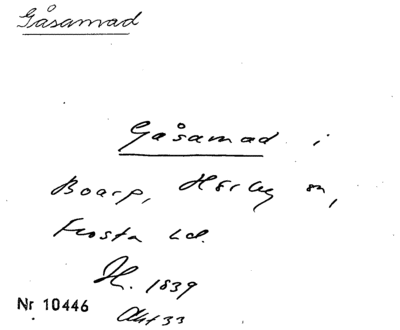 Gåsamad
Gåsamad i
Boarp, Hörby sn,
Frosta hd.
H. 1839
Nr 10446
Akt 33